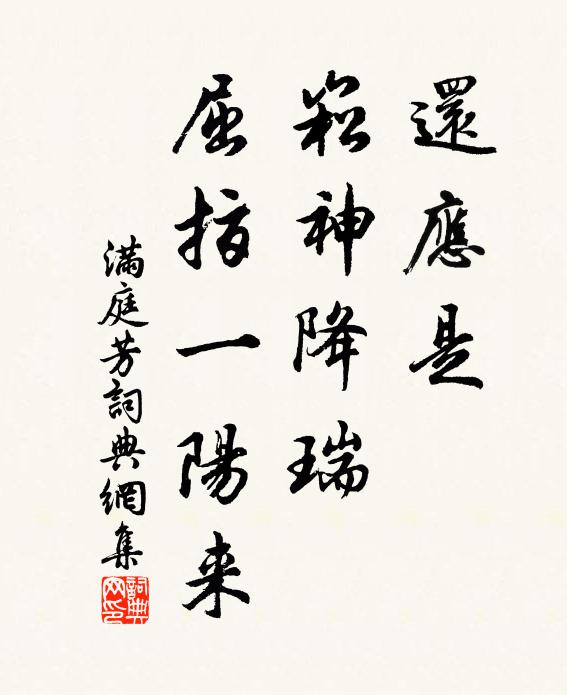 還應是
崧神降瑞
屈指一陽来
滿庭芳詞典網集
詞典网印